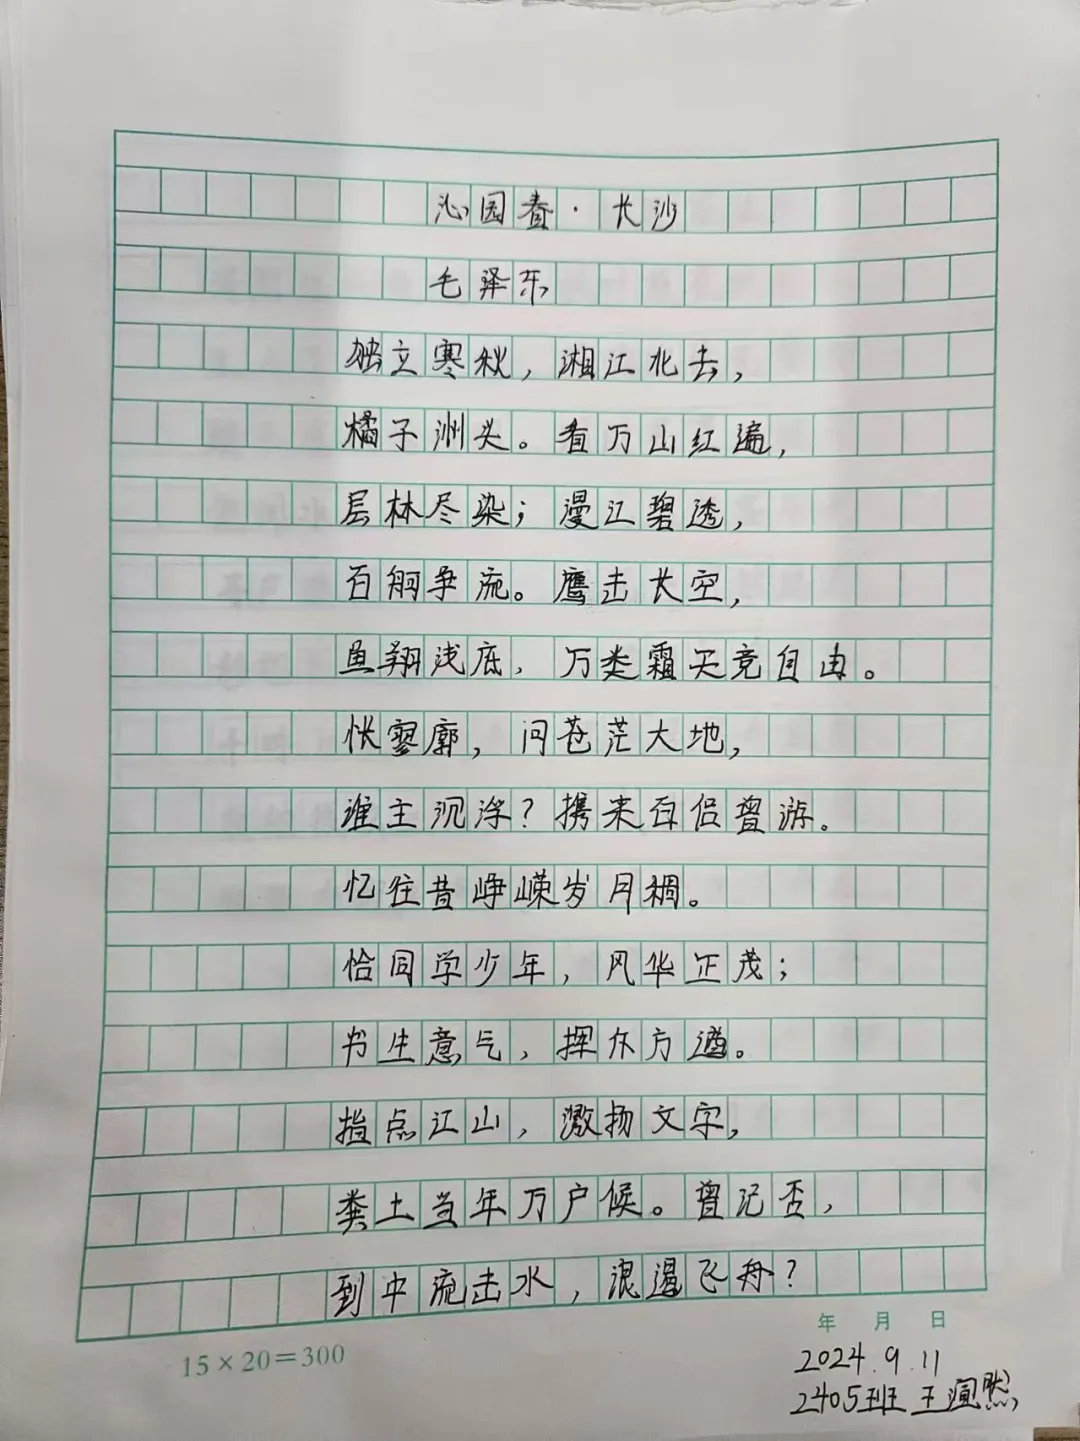 沁园春·长沙
毛泽东
独立寒秋，湘江北去，
橘子洲头。看万山红遍，
层林尽染；漫江碧透，
百舸争流。鹰击长空，
鱼翔浅底，万类霜天竞自由。
怅寥廓，问苍茫大地，
谁主沉浮？携来百侣曾游。
忆往昔峥嵘岁月稠。
恰同学少年，风华正茂；
书生意气，挥斥方遒。
指点江山，激扬文字，
粪土当年万户候。曾记否，
到中流击水，浪遏飞舟？
年 月 日
15×20=300
2024.9.11
2405班 王润然